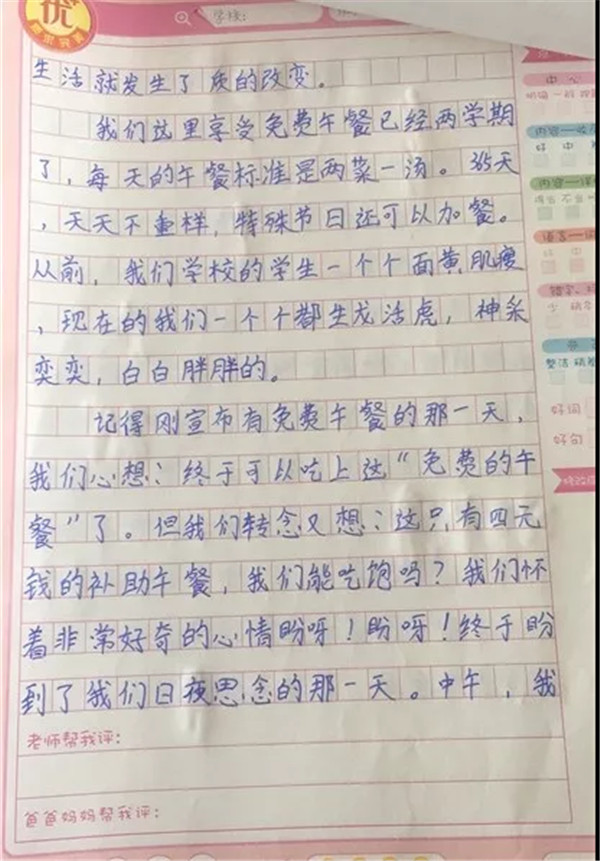 优
学校:
生活就发生了质的改变。
我们这里享受免费午餐已经两学期
了，每天的午餐标准是两菜一汤。365天
，天天不重样，特殊节日还可以加餐。
从前，我们学校的学生一个个面黄肌瘦
，现在的我们一个个都生龙活虎，神采
奕奕，白白胖胖的。
记得刚宣布有免费午餐的那一天，
我们心想：终于可以吃上这“免费的午
餐”了。但我们转念又想：这只有四元
钱的补助午餐，我们能吃饱吗？我们怀
着非常好奇的心情盼呀！盼呀！终于盼
到了我们日夜思念的那一天。中午，我
老师帮我评：
爸爸妈妈帮我评：
中心
好 中
好词
好句